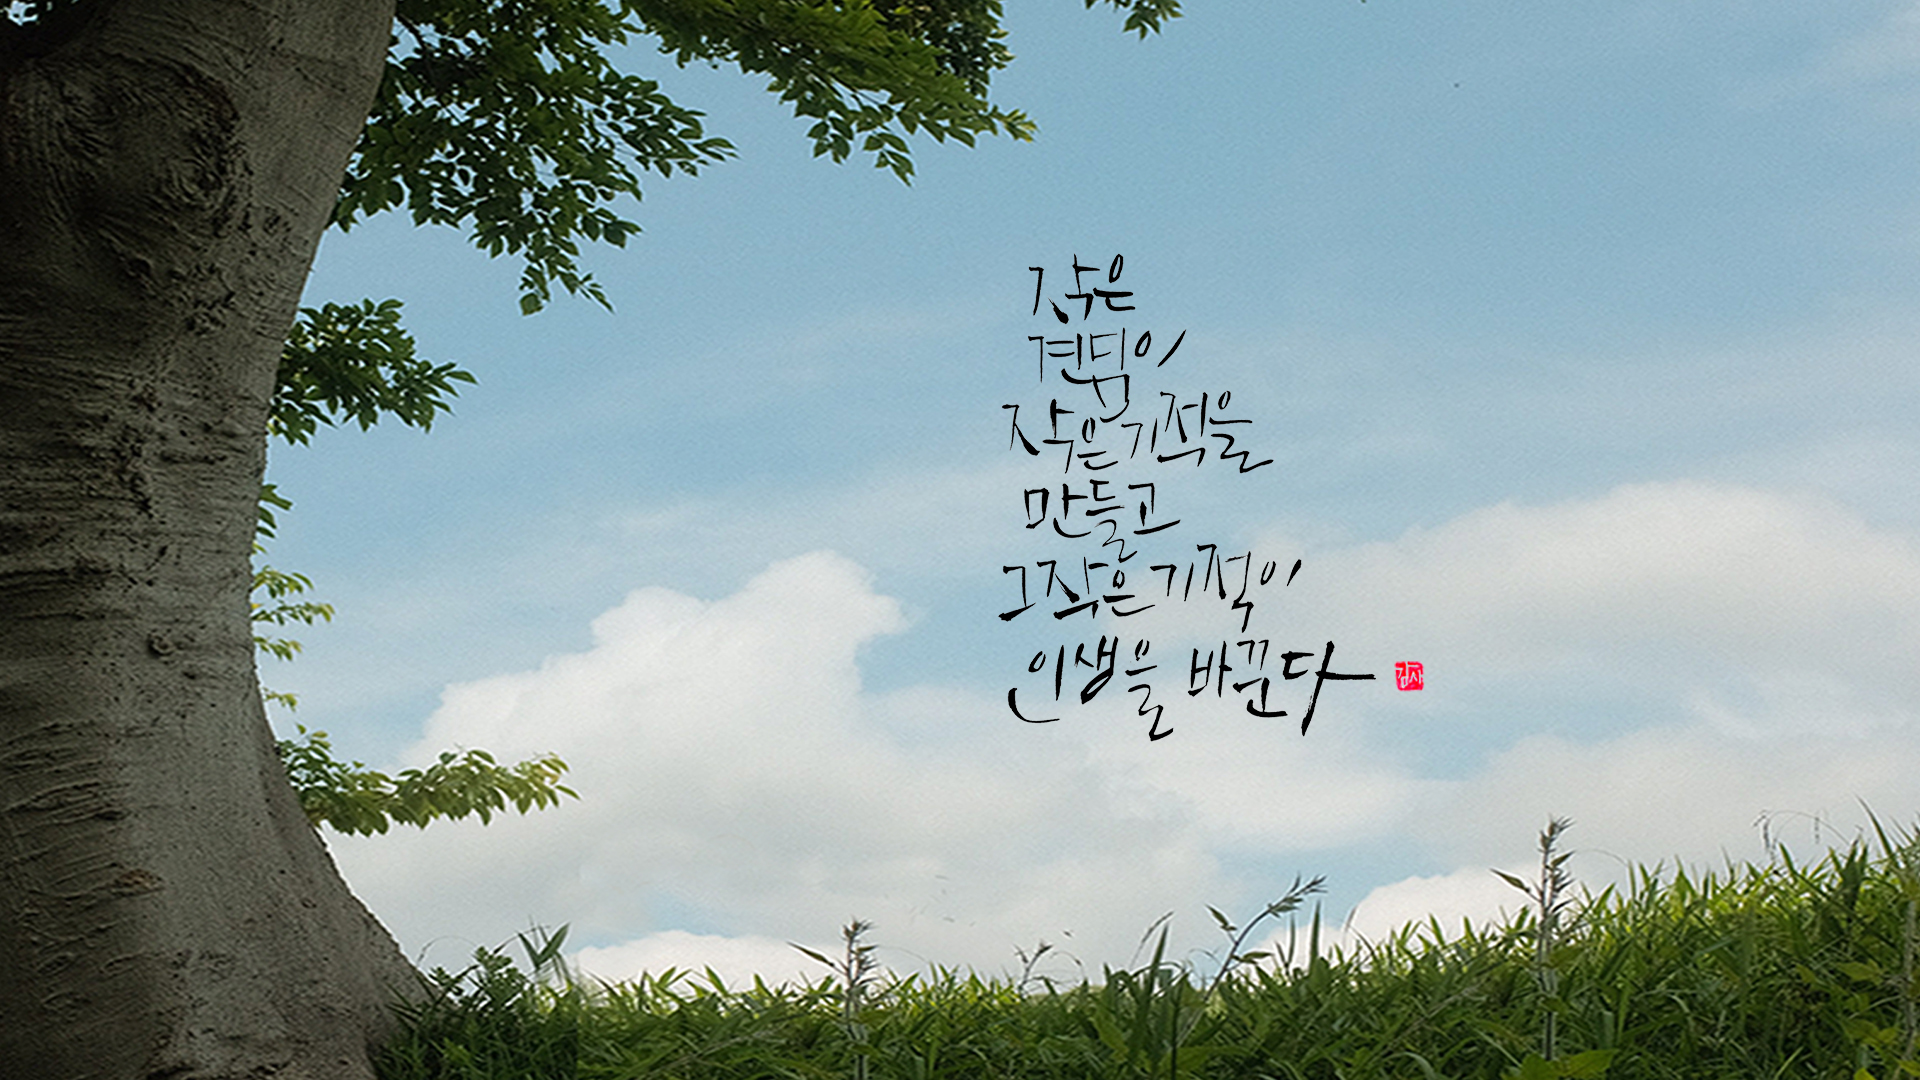 작은
견딤이
작은 기적을
만들고
그 작은 기적이
인생을 바꾼다
감사